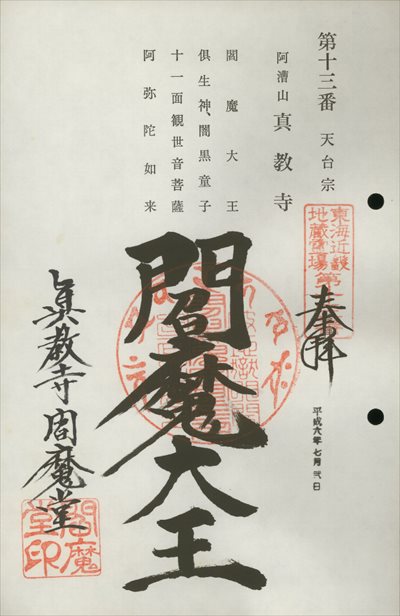 第十三番 天台宗
阿漕山 真教寺
閻魔大王
倶生神、闇黒童子
十一面観世音菩薩
阿弥陀如来
奉拝
平成六年七月弐日
閻魔大王
真教寺閻魔堂
閻魔
堂印